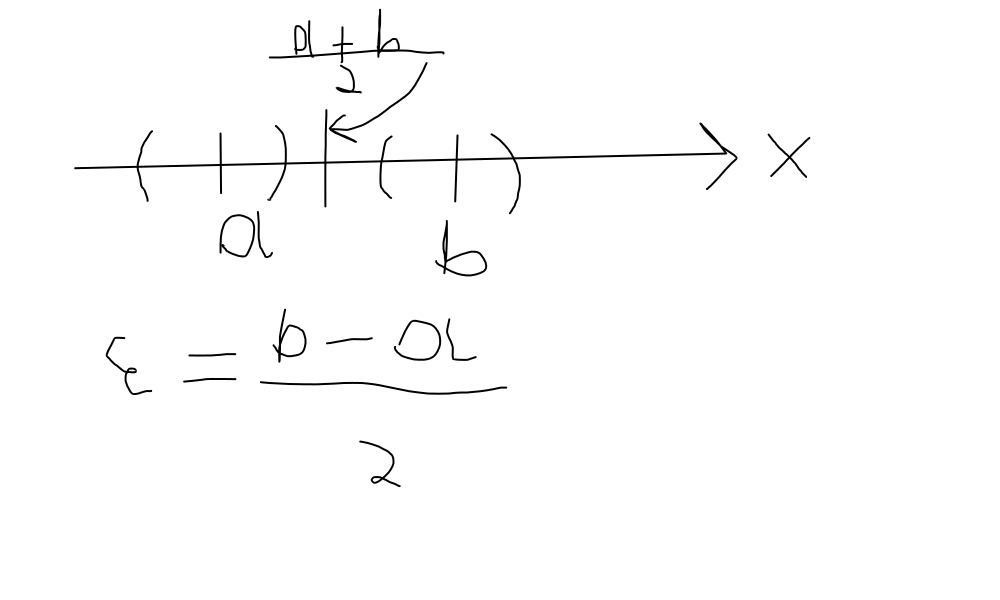 a + b
2
( | ) | ( | ) X
a b
ε = b - a
2